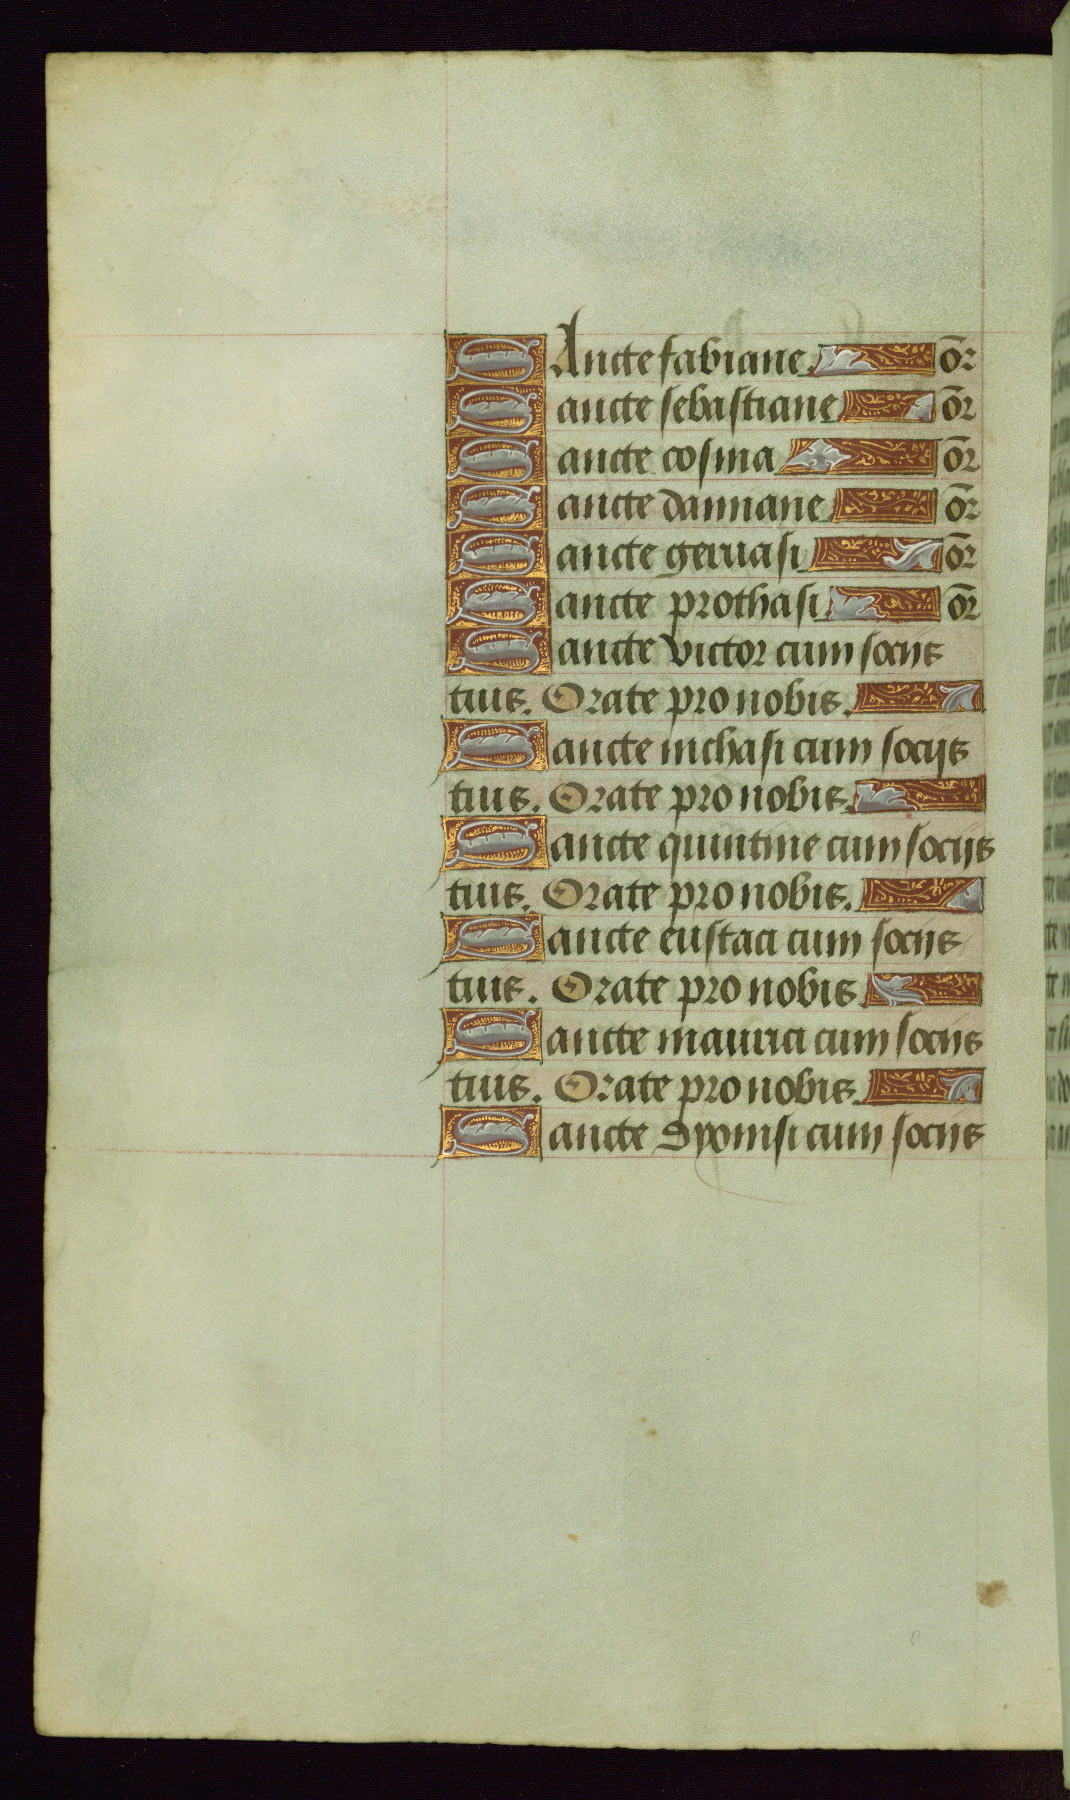 SAncte fabiane. or̄
Sancte sebastiane or̄
Sancte cosma or̄
Sancte damiane or̄
Sancte geruasi or̄
Sancte prothasi or̄
Sancte victor cum socijs
tuis. Orate pro nobis.
Sancte nichasi cum socijs
tuis. Orate pro nobis.
Sancte quintine cum socijs
tuis. Orate pro nobis.
Sancte eustaci cum socijs
tuis. Orate pro nobis
Sancte maurici cum socijs
tuis. Orate pro nobis.
Sancte dyonisi cum socijs